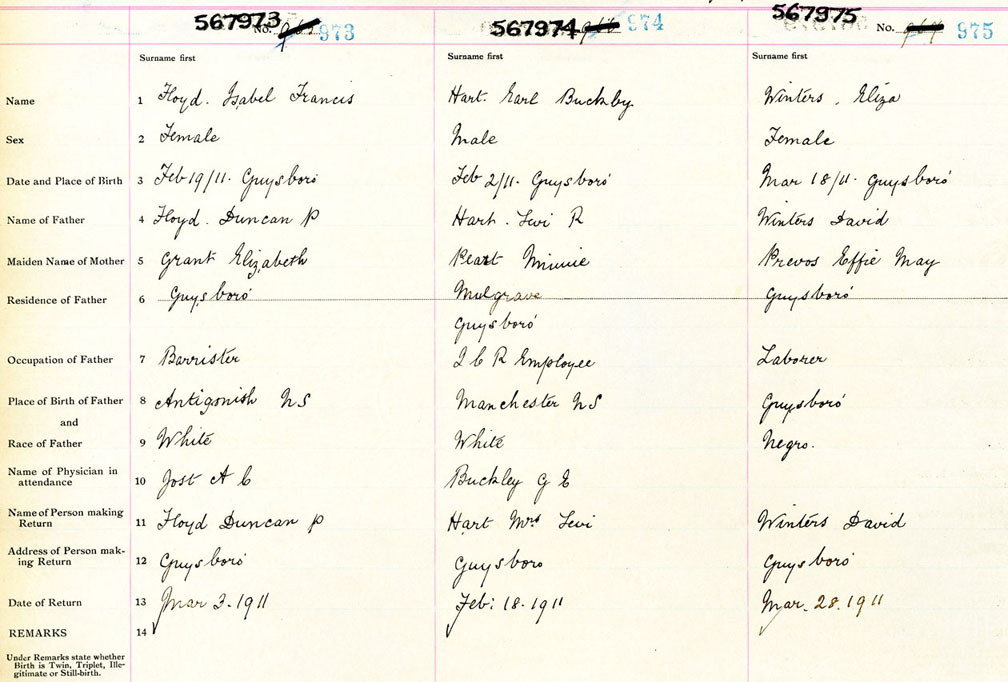 567973 No. 973 567974 974 567975 No. 975
Surname first Surname first Surname first
Name 1 Floyd. Isabel Francis Hart. Earl Buckley Winters. Eliza
Sex 2 Female Male Female
Date and Place of Birth 3 Feb 19/11. Guysboro Feb 2/11. Guysboro' Mar 18/11. Guysboro'
Name of Father 4 Floyd. Duncan P Hart. Levi R Winters David
Maiden Name of Mother 5 Grant Elizabeth Peart Minnie Prevos Effie May
Residence of Father 6 Guysboro' Mulgrave Guysboro'
Guysboro'
Occupation of Father 7 Barrister I C R Employee Laborer
Place of Birth of Father 8 Antigonish NS Manchester NS Guysboro'
and
Race of Father 9 White White Negro.
Name of Physician in
attendance 10 Jost A C Buckley G E
Name of Person making
Return 11 Floyd Duncan P Hart Mrs Levi Winters David
Address of Person mak-
ing Return 12 Guysboro' Guysboro Guysboro'
Date of Return 13 Mar 3. 1911 Feb: 18. 1911 Mar. 28. 1911
REMARKS 14
Under Remarks state whether
Birth is Twin, Triplet, Ille-
gitimate or Still-birth.